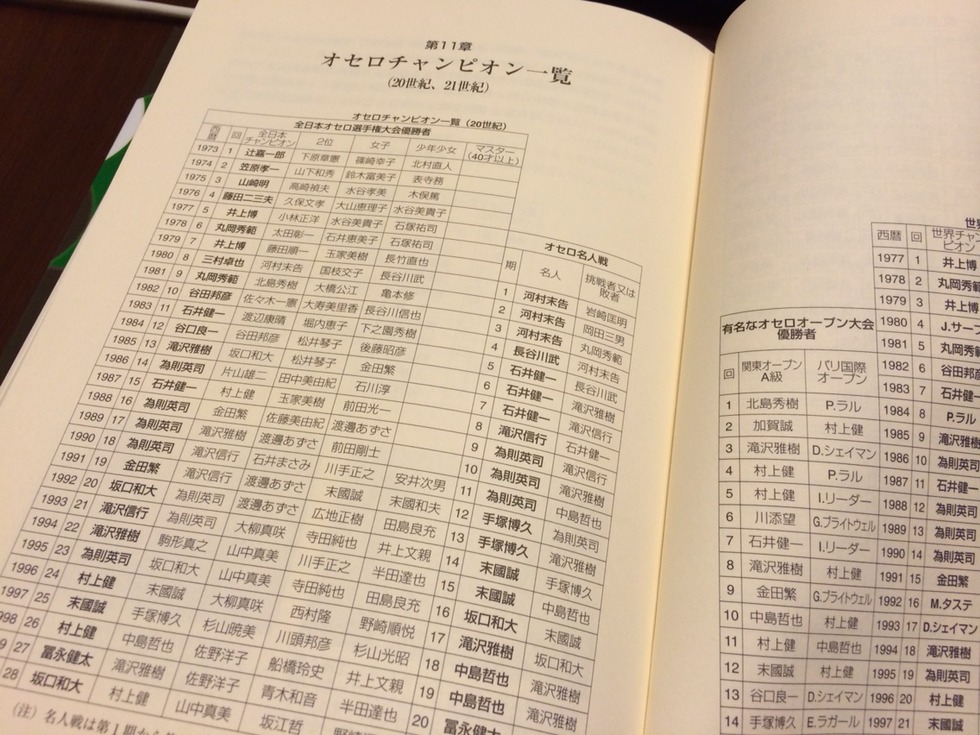 第11章
オセロチャンピオン一覧
(20世紀、21世紀)
オセロチャンピオン一覧 (20世紀)
全日本オセロ選手権大会優勝者
西暦 回 全日本チャンピオン 2位 女子 少年少女 マスター(40才以上)
1973 1 辻嘉一郎 下原章憲 篠崎幸子 北村直人
1974 2 笠原孝一 山下和秀 鈴木富美子 表寺務
1975 3 山崎明 高崎禎夫 水谷孝美 木俣篤
1976 4 藤田二三夫 久保文孝 大山恵理子 水谷美貴子
1977 5 井上博 小林正洋 水谷美貴子 石塚祐司
1978 6 丸岡秀範 太田彰一 石井恵美子 石塚祐司
1979 7 井上博 藤田順一 玉家美樹 長竹直也
1980 8 三村卓也 河村末告 国枝交子 長谷川武
1981 9 丸岡秀範 北島秀樹 大橋公江 亀本修
1982 10 谷田邦彦 佐々木一憲 大寿美里香 長谷川信也
1983 11 石井健一 渡辺康晴 堀内恵子 下之園秀樹
1984 12 谷口良一 谷田邦彦 松井琴子 後藤昭彦
1985 13 滝沢雅樹 坂口和大 松井琴子 金田繁
1986 14 為則英司 片山雄二 田中美由紀 石川淳
1987 15 石井健一 村上健 玉家美樹 前田光一
1988 16 為則英司 金田繁 佐藤美由紀 渡邊あずさ
1989 17 為則英司 滝沢雅樹 渡邊あずさ 前田剛士
1990 18 為則英司 滝沢信行 石井まさみ 川手正之 安井次男
1991 19 金田繁 滝沢信行 渡邊あずさ 末國誠 末國和夫
1992 20 坂口和大 為則英司 渡邊あずさ 広地正樹 田島良充
1993 21 滝沢信行 為則英司 大柳真咲 寺田純也 井上文親
1994 22 滝沢雅樹 駒形真之 山中真美 川手正之 半田達也
1995 23 為則英司 坂口和大 山中真美 寺田純也 田島良充
1996 24 村上健 末國誠 大柳真咲 西村隆 野崎順悦
1997 25 末國誠 手塚博久 杉山暁美 川頭邦彦 杉山光昭
998 26 村上健 中島哲也 佐野洋子 船橋玲史 井上文親
9 27 冨永健太 滝沢雅樹 佐野洋子 青木和音 半田達也
28 坂口和大 村上健 山中真美 坂江哲 野崎
(注) 名人戦は第1期から
オセロ名人戦
期 名人 挑戦者又は敗者
1 河村末告 岩崎匡明
2 河村末告 岡田三男
3 河村末告 丸岡秀範
4 長谷川武 河村末告
5 石井健一 長谷川武
6 石井健一 滝沢雅樹
7 石井健一 滝沢信行
8 滝沢信行 石井健一
9 為則英司 滝沢雅樹
10 為則英司 滝沢雅樹
11 為則英司 中島哲也
12 手塚博久 為則英司
13 手塚博久 滝沢雅樹
14 末國誠 手塚博久
15 末國誠 中島哲也
16 坂口和大 末國誠
17 滝沢雅樹 坂口和大
18 中島哲也 滝沢雅樹
19 中島哲也 滝沢雅樹
20 冨永健太
有名なオセロオープン大会優勝者
回 関東オープンA級 パリ国際オープン
1 北島秀樹 P.ラル
2 加賀誠 村上健
3 滝沢雅樹 D.シェイマン
4 村上健 P.ラル
5 村上健 I.リーダー
6 川添望 G.ブライトウェル
7 石井健一 I.リーダー
8 滝沢雅樹 村上健
9 金田繁 G.ブライトウェル
10 中島哲也 村上健
11 村上健 中島哲也
12 末國誠 村上健
13 谷口良一 D.シェイマン
14 手塚博久 E.ラガール
世界
西暦 回 世界チャンピオン
1977 1 井上博
1978 2 丸岡秀範
1979 3 井上博
1980 4 J.サー
1981 5 丸岡秀範
1982 6 谷田邦
1983 7 石井健一
1984 8 P.ラル
1985 9 滝沢雅樹
1986 10 為則英司
1987 11 石井健一
1988 12 為則英司
1989 13 為則英司
1990 14 為則英司
1991 15 金田繁
1992 16 M.タステ
1993 17 D.シェイマン
1994 18 滝沢雅樹
1995 19 為則英司
1996 20 村上健
1997 21 末國誠